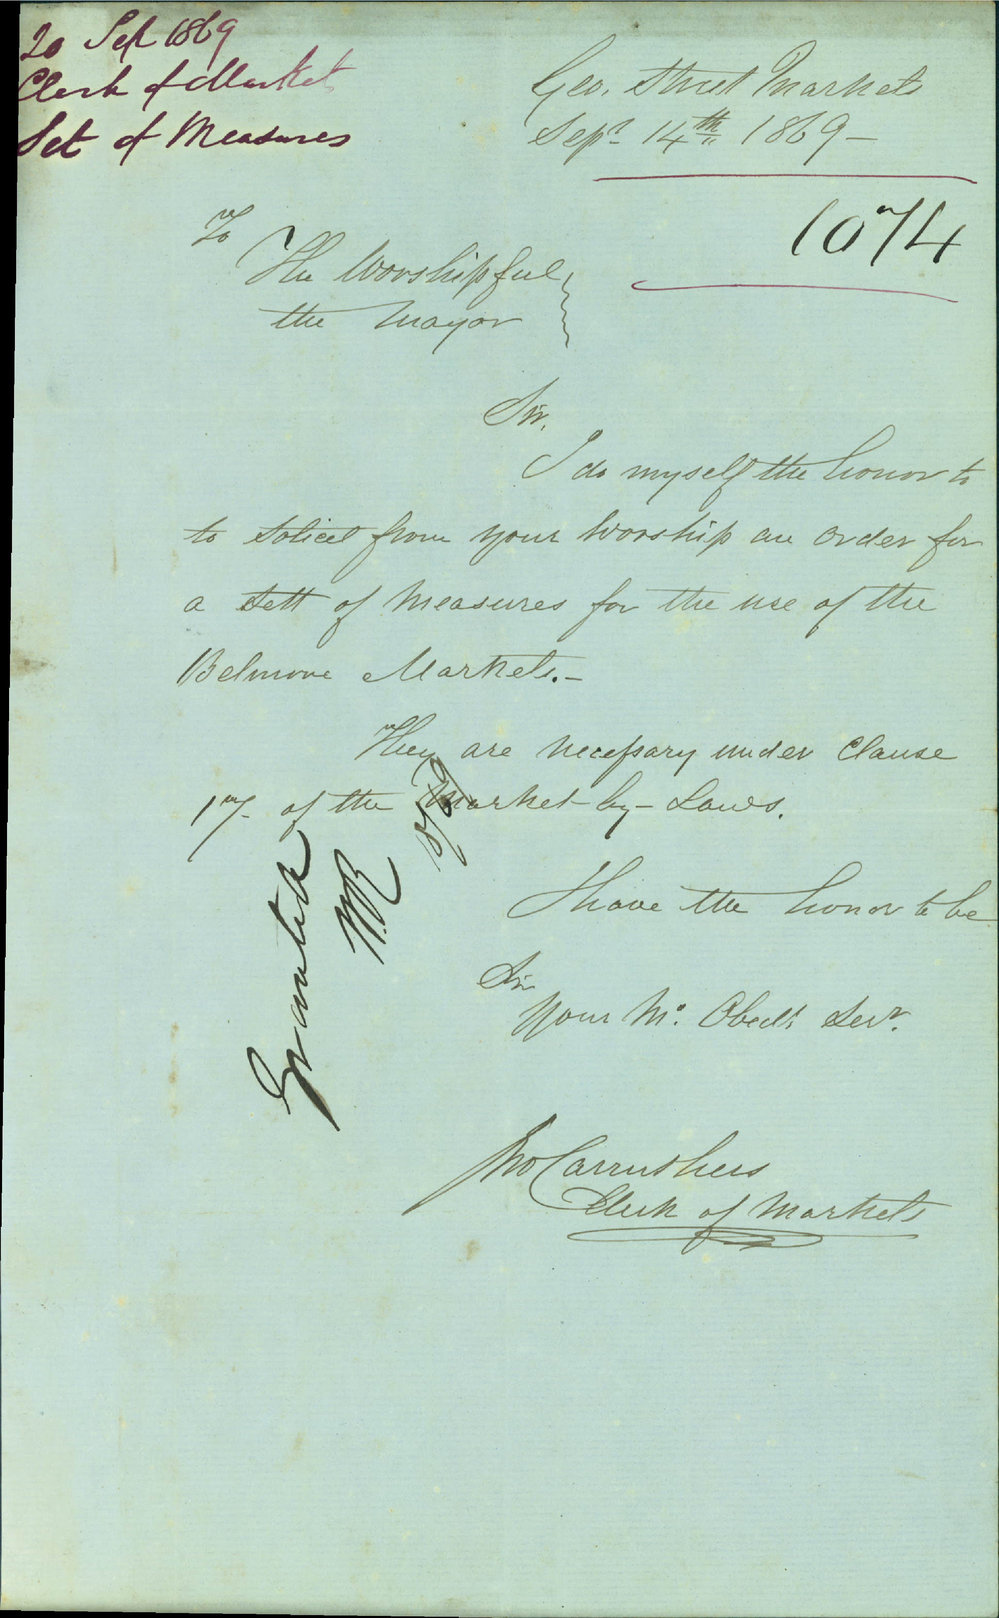 20 Sep 1869
Clerk of Market
Set of Measures
Geo. Street Markets
Sepr 14th 1869 -
1074
To
The Worshipful
the Mayor
Sir,
I do myself the honor to
to solicit from your Worship an order for
a Sett of Measures for the use of the
Belmore Markets. -
They are necessary under Clause
17 of the Market-by-Laws.
I have the honor to be
Sir
Your Mo. Obedt. Servt.
Jno Carruthers
Clerk of Markets
Granted
W.R